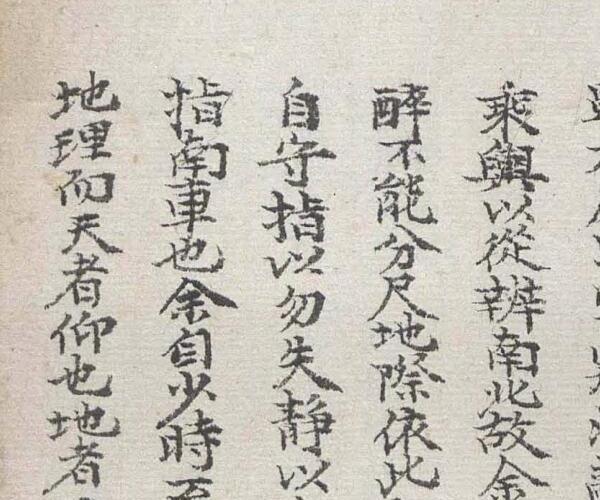 乘輿以從辨南北故余
醉不能分尺地際依此
自守指以勿失静以
指南車也余自少時至
地理而天者仰也地者